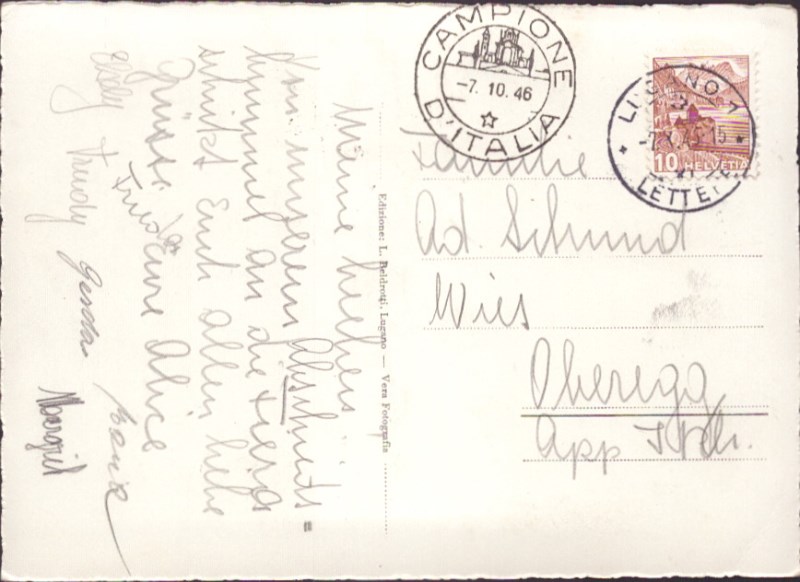 CAMPIONE
D'ITALIA
-7. 10. 46
LUGANO 1
LETTERE
10 HELVETIA
Familie
Ad. Schmid
Wies
Oberegg
App I. Rh.
Edizione: L. Beldrotti, Lugano — Vera Fotografia
Meine Lieben
Von unserem Abschieds=
bummel an die
schickt Euch allen liebe
Grüsse Eure Alice
Trudy
Gerda
Margrit